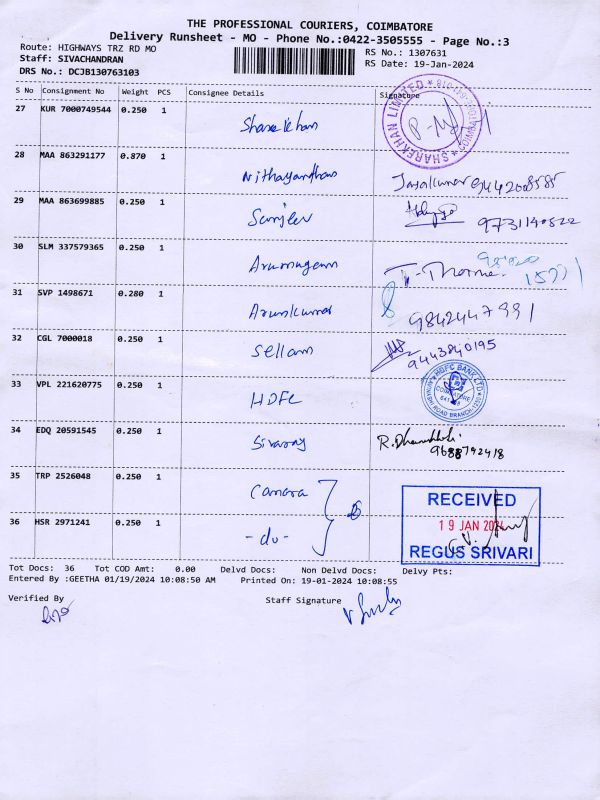 THE PROFESSIONAL COURIERS, COIMBATORE
Delivery Runsheet - MO - Phone No.:0422-3505555 - Page No.:3
Route: HIGHWAYS TRZ RD MO
RS No.: 1307631
Staff: SIVACHANDRAN
RS Date: 19-Jan-2024
DRS No.: DCJB130763103
S No Consignment No Weight PCS Consignee Details Signature
27 KUR 7000749544 0.250 1 Sharekhan
SHAREKHAN LIMITED
28 MAA 863291177 0.870 1 Nithayanthan Jayakumar 9442008585
29 MAA 863699885 0.250 1 Sanjeev 9731140522
30 SLM 337579365 0.250 1 Arumugam
31 SVP 1498671 0.280 1 Arunkumar 9842447991
32 CGL 7000018 0.250 1 Sellam 9443840195
33 VPL 221620775 0.250 1 HDFC
HDFC BANK LTD
COIMBATORE
34 EDQ 20591545 0.250 1 Sivaraj R. Dhanalakshmi
9688792418
35 TRP 2526048 0.250 1 Canara
RECEIVED
19 JAN 2024
36 HSR 2971241 0.250 1 -do-
REGUS SRIVARI
Tot Docs: 36 Tot COD Amt: 0.00 Delvd Docs: Non Delvd Docs: Delvy Pts:
Entered By :GEETHA 01/19/2024 10:08:50 AM Printed On: 19-01-2024 10:08:55
Verified By Staff Signature